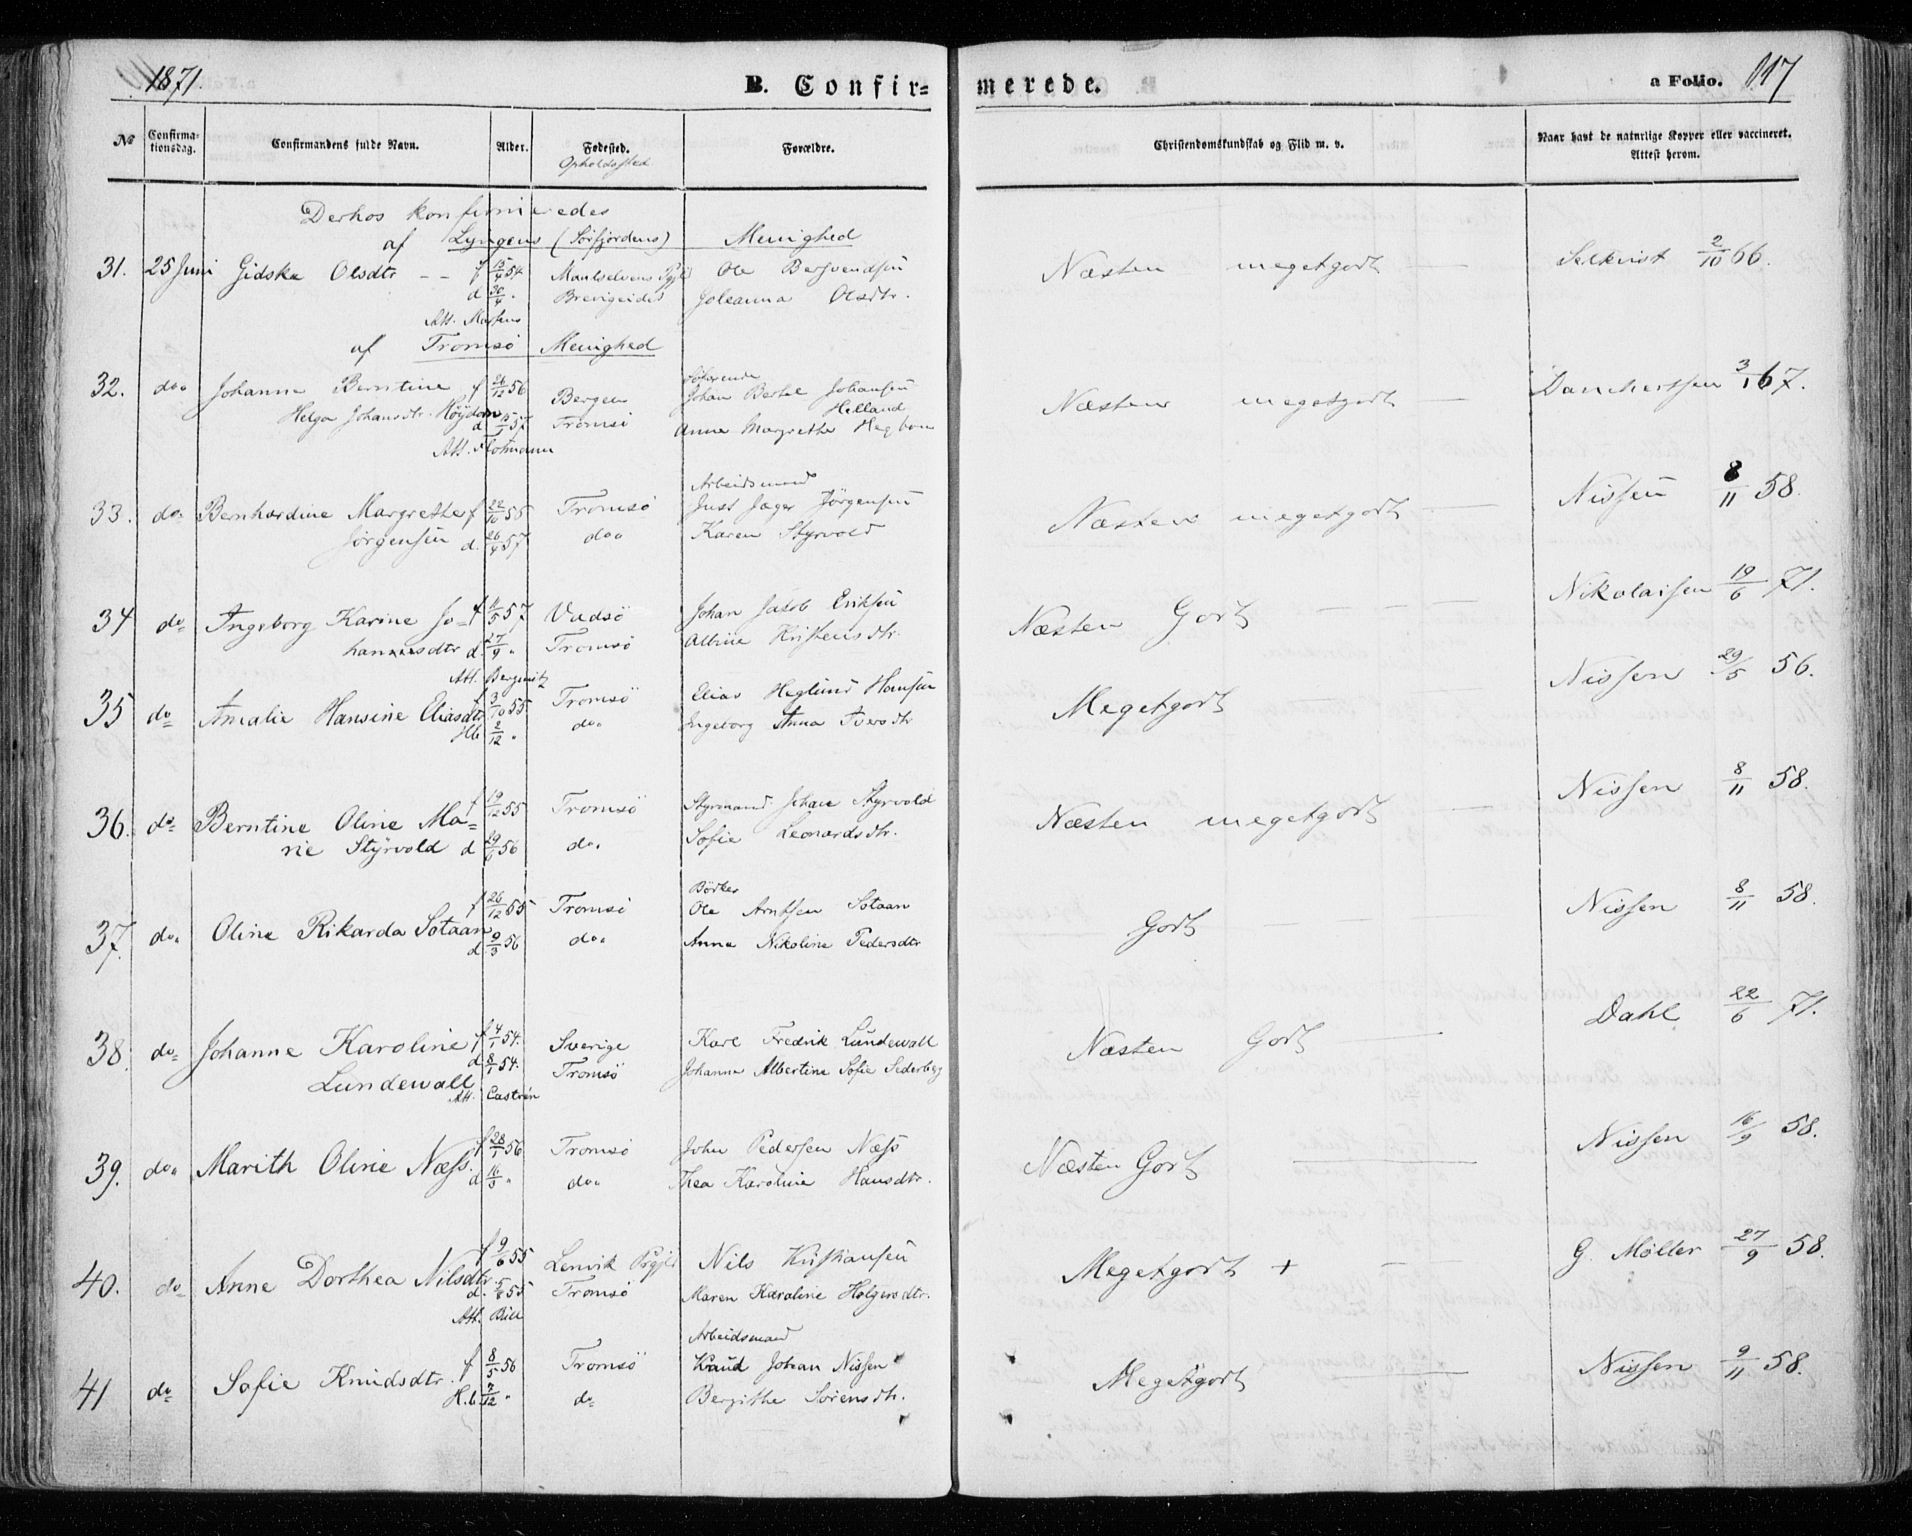 1871. B. Confirmerede. a Folio. 117
№ Confirmationsdag. Confirmandens fulde Navn. Alder. Fødested. Forældre. Christendomskundskab og Flid m. v. Naar havt de naturlige Kopper eller vaccineret. Attest herom.
Opholdssted
Derhos konfirmeredes
af Lyngens (Sørfjordens) Menighed
31. 25 Juni Gidska Olsdtr f 15/4 54 Maalselvens Pgjld Ole Bersvendsen Næsten megetgodt 2/10 66.
d 30/4 " Brevigeidet Joleanna Olsdtr.
Att.
af Tromsø Menighed
32. do" Johanne Berntine f 26/12 56 Bergen Søfarende Johan Bertel Johansen Helland Næsten megetgodt Danchertsen 3/1 67.
Helga Johansdtr. d. 57 Tromsø Anne Margrethe
Att.
33. do" Bernhardine Margrethe f 22/10 56 Tromsø Arbeidsmand Just Jæger Jørgensen Næsten megetgodt Nissen 8/11 58.
Jørgensen d. 26/4 57 do" Karen Styrvold
34 do" Ingeborg Karine Jo= f 57 Vadsø Johan Jakob Eriksen Næsten Godt Nikolaisen 19/6 71.
hannesdtr d. 27/9 " Tromsø Albine Kristensdtr.
Att.
35 do Amalie Hansine Eliasdtr f 3/10 55. Tromsø Elias Heglund Hansen Megetgodt Nissen 29/5 56.
Hb 2/12 " do" Ingeborg Anna Iversdtr
36. do Berntine Oline Ma= f 19/12 55 Tromsø Styrmand Johan Styrvold Næsten megetgodt Nissen 8/11 58.
rie Styrvold d 29/6 56 do. Sofie Leonardsdtr.
37. do" Oline Rikarda Sotaan f 26/12 55 Tromsø Bödker Ole Arntsen Sotaan Godt Nissen 8/11 58.
d. 9/3 56 do" Anne Nikoline Pedersdtr
38. do Johanne Karoline f 4/1 54. Sverige Karl Fredrik Lundewall Næsten Godt Dahl 22/6 71.
Lundewall d 8/1 54. Tromsø Johanne Albertine Sofie Sederberg
Att. Castrén
39. do" Marith Oline Næss. f 28/1 56 Tromsø John Pedersen Næss Næsten Godt Nissen 16/9 58.
d 16/3 " do" Thea Karoline Hansdtr.
40. do Anne Dorthea Nilsdtr. f 9/6 55 Lenvik Pgjld Nils Kristiansen Megetgodt + G. Møller 27/9 58.
d. 55 Tromsø Maren Karoline Holgersdtr.
Att.
41 do Sofie Knudsdtr. f 8/5 56 Tromsø Arbeidsmand Knud Johan Nissen Megetgodt Nissen 9/11 58.
H.b. 7/12 " do Bergithe Sørensdtr.